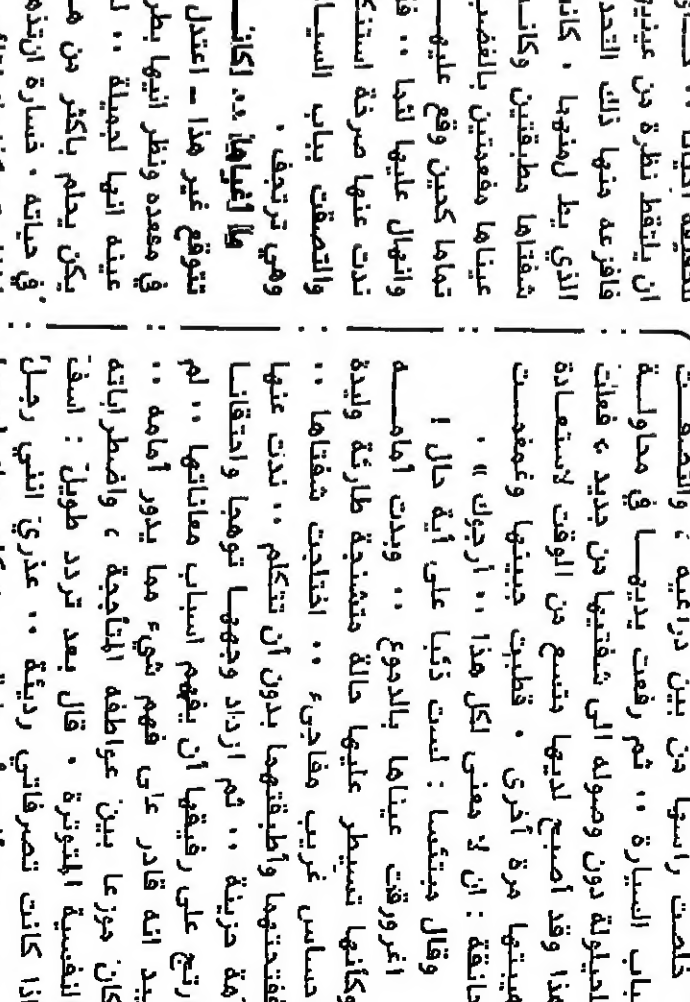 خلصت راسها من بين ذراعيه ، والتصقت
بباب السيارة .. ثم رفعت يديها في محاولة
لحيلولة دون وصوله الى شفتيها من جديد ، فعلت
هذا وقد أصبح لديها متسع من الوقت لاستعادة
هيبتها مرة أخرى . قطبت جبينها وغمغمت
حانقة : ان لا معنى لكل هذا .. أرجوك » .
وقال مبتئسا : لست ذئبا على أية حال !
اغرورقت عيناها بالدموع .. وبدت أمامه
وكأنها تسيطر عليها حالة متشنجة طارئة وليدة
حساس غريب مفاجىء .. اختلجت شفتاها ..
ففتحتهما وأطبقتهما بدون أن تتكلم .. ندت عنها
مة حزينة .. ثم ازداد وجهها توهجا واحتقانا
رتج على رفيقها أن يفهم اسباب معاناتها .. لم
بيد انه قادر على فهم شيء مما يدور أمامه ..
كان موزعا بين عواطفه المتأججة ، واضطراباته
لنفسية المتوترة . قال بعد تردد طويل : اسف
اذا كانت تصرفاتي رديئة .. عذري انني رجل
ان يلتقط نظرة من عينيها
فافزعه منها ذلك التحد
الذي يطل منهما . كانت
شفتاها مطبقتين وكانـ
عيناها مفعمتين بالغضب
تماما كحين وقع عليهـ
وانهال عليها لثما .. فـ
ندت عنها صرخة استنكـ
والتصقت بباب السيا
وهي ترتجف .
ما أغباها .. اكانـ
تتوقع غير هذا ـ اعتدل
في مقعده ونظر اليها بطر
عينه انها لجميلة .. لـ
يكن يحلم باكثر من هـ
في حياته .